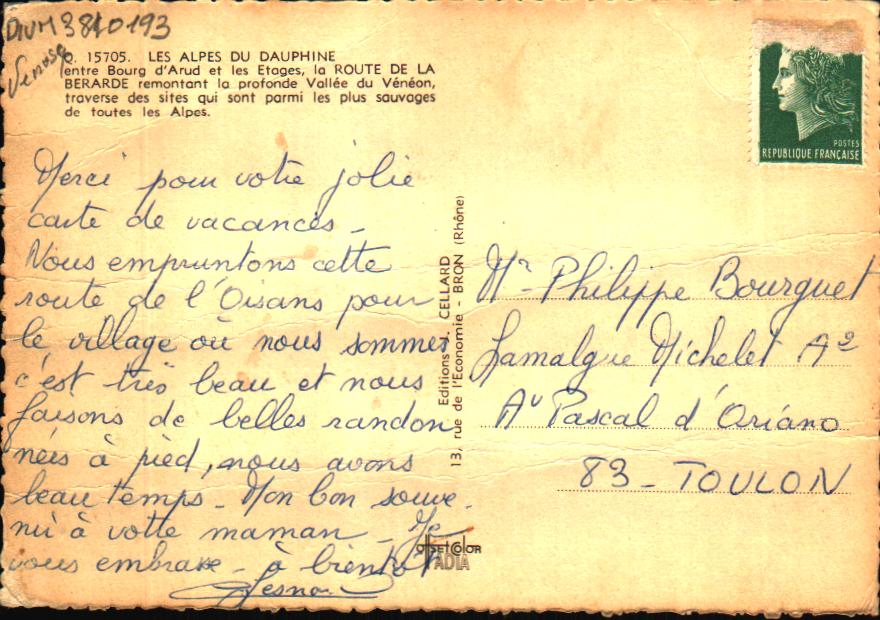 DIVM3810193
Venosc
C. 15705. LES ALPES DU DAUPHINE
entre Bourg d'Arud et les Etages, la ROUTE DE LA
BERARDE remontant la profonde Vallée du Vénéon,
traverse des sites qui sont parmi les plus sauvages
de toutes les Alpes.
Merci pour votre jolie
carte de vacances -
Nous empruntons cette
route de l'Oisans pour
le village où nous sommes
c'est très beau et nous
faisons de belles randon
nées à pied, nous avons
beau temps - Mon bon souve-
nir à votre maman - Je
vous embrasse - à bientôt
Editions J. CELLARD
13, rue de l'Economie - BRON (Rhône)
POSTES
REPUBLIQUE FRANÇAISE
Mr Philippe Bourguet
Lamalgue Michelet A2
Av Pascal d'Oriano
83 - TOULON
offset color
ADIA